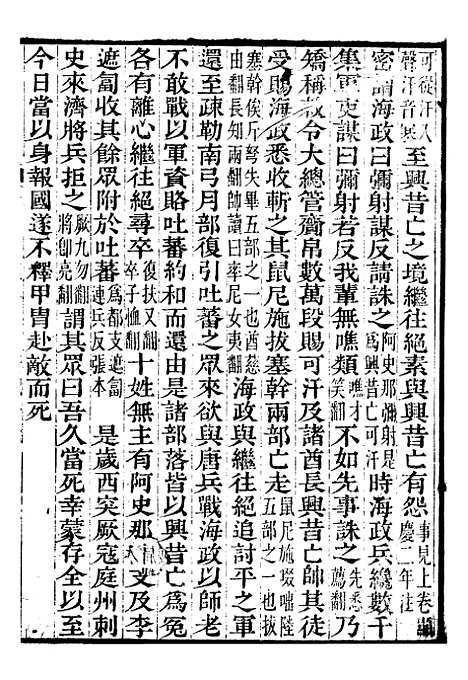 可從汗入聲汗音寒至興昔亡之境繼往絕素與興昔亡有怨事見上卷慶二年注
密謂海政曰彌射謀反請誅之阿史那彌射是爲興昔亡可汗時海政兵纔數千
集軍吏謀曰彌射若反我輩無噍類噍才笑翻不如先事誅之先悉薦翻乃
矯稱敕令大總管齎帛數萬段賜可汗及諸酋長興昔亡帥其徒
受賜海政悉收斬之其鼠尼施拔塞幹兩部亡走鼠尼施啜咄陸五部之一也拔
塞幹俟斤弩失畢五部之一也酋慈由翻長知兩翻帥讀曰率尼女夷翻海政與繼往絕追討平之軍
還至疏勒南弓月部復引吐蕃之眾來欲與唐兵戰海政以師老
不敢戰以軍資賂吐蕃約和而還由是諸部落皆以興昔亡爲冤
各有離心繼往絕尋卒復扶又翻卒子恤翻十姓無主有阿史那支及李
遮匐收其餘眾附於吐蕃爲都支遮匐連兵反張本是歲西突厥寇庭州刺
史來濟將兵拒之厥九勿翻將卽亮翻謂其眾曰吾久當死幸蒙存全以至
今日當以身報國遂不釋甲冑赴敵而死